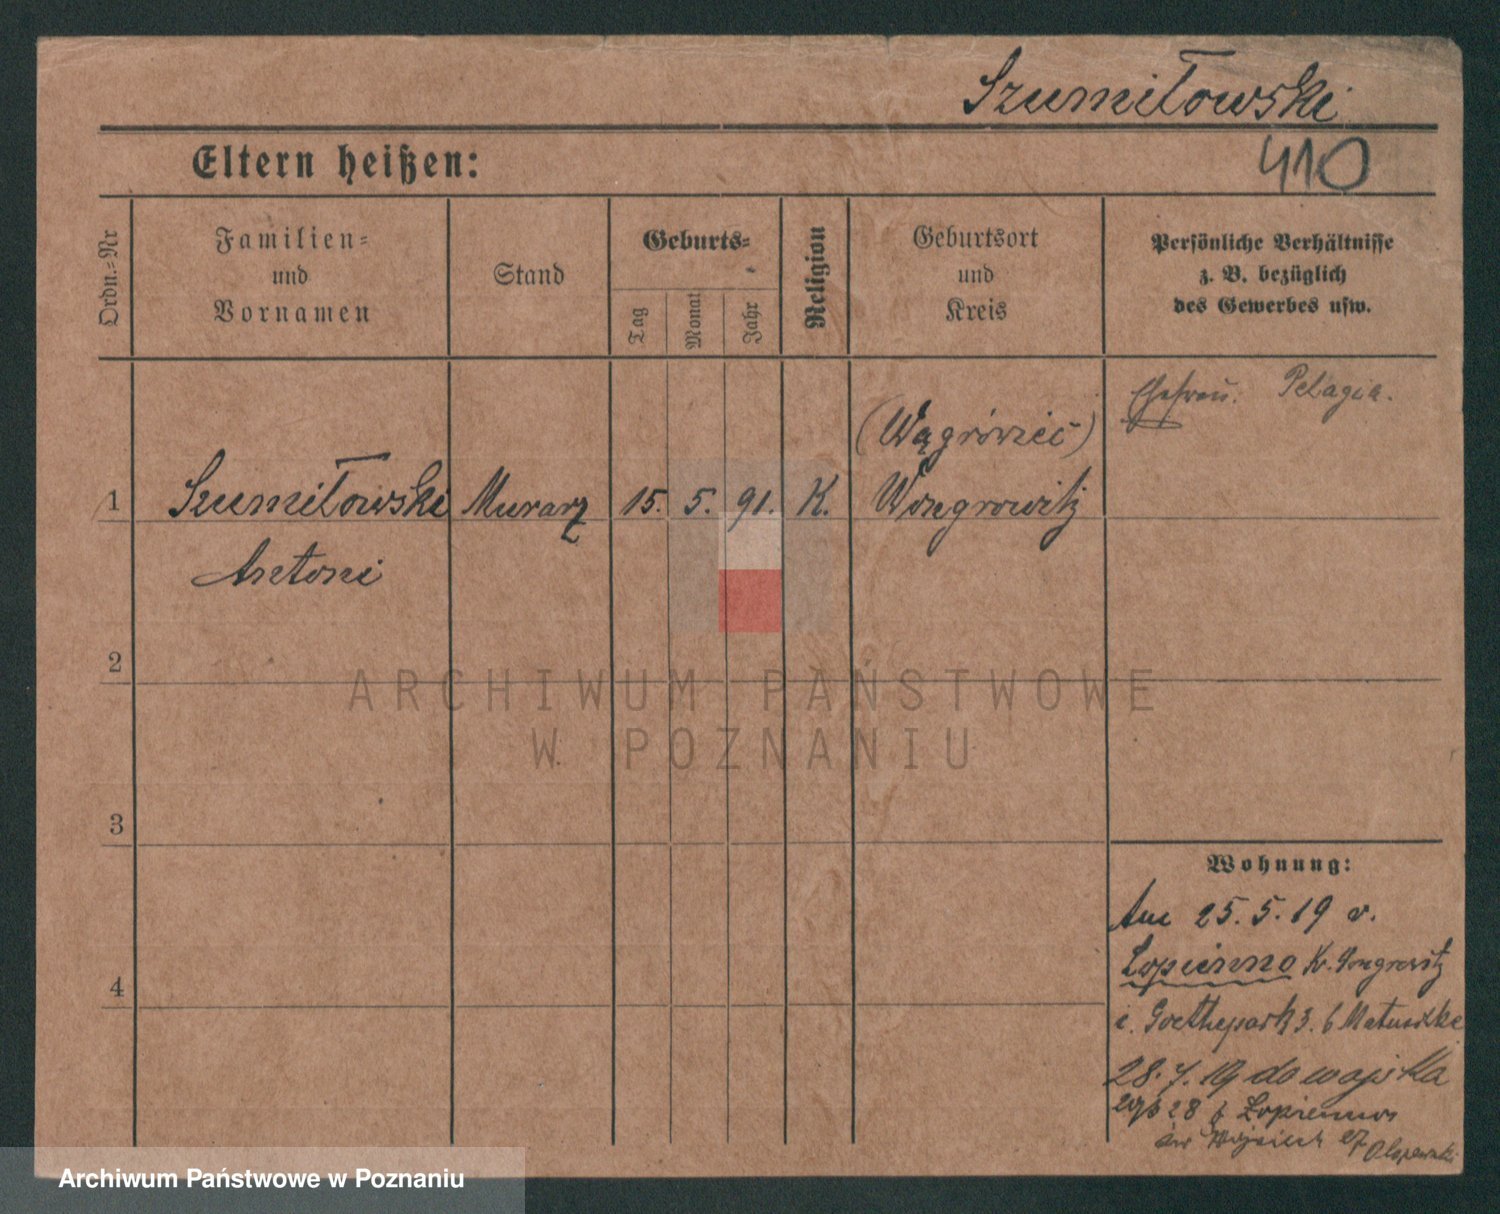 Szumiłowski
Eltern heißen:
410
Ordn.=Nr
Familien=
und
Vornamen
Stand
Geburts=
Tag
Monat
Jahr
Religion
Geburtsort
und
Kreis
Persönliche Verhältnisse
z. B. bezüglich
des Gewerbes usw.
Ehefrau: Pelagia.
(Wągrówiec)
1 Szumiłowski Murarz 15. 5. 91. K. Wongrowitz
Antoni
2
ARCHIWUM PAŃSTWOWE
W POZNANIU
3
Wohnung:
Am 25.5.19 v.
Łopienno Kr. Wongrowitz
i. Goethepark 3. b Matuszke
4
28.7.19 do wojska
28 Łopienno
św Wojciech 27
Archiwum Państwowe w Poznaniu